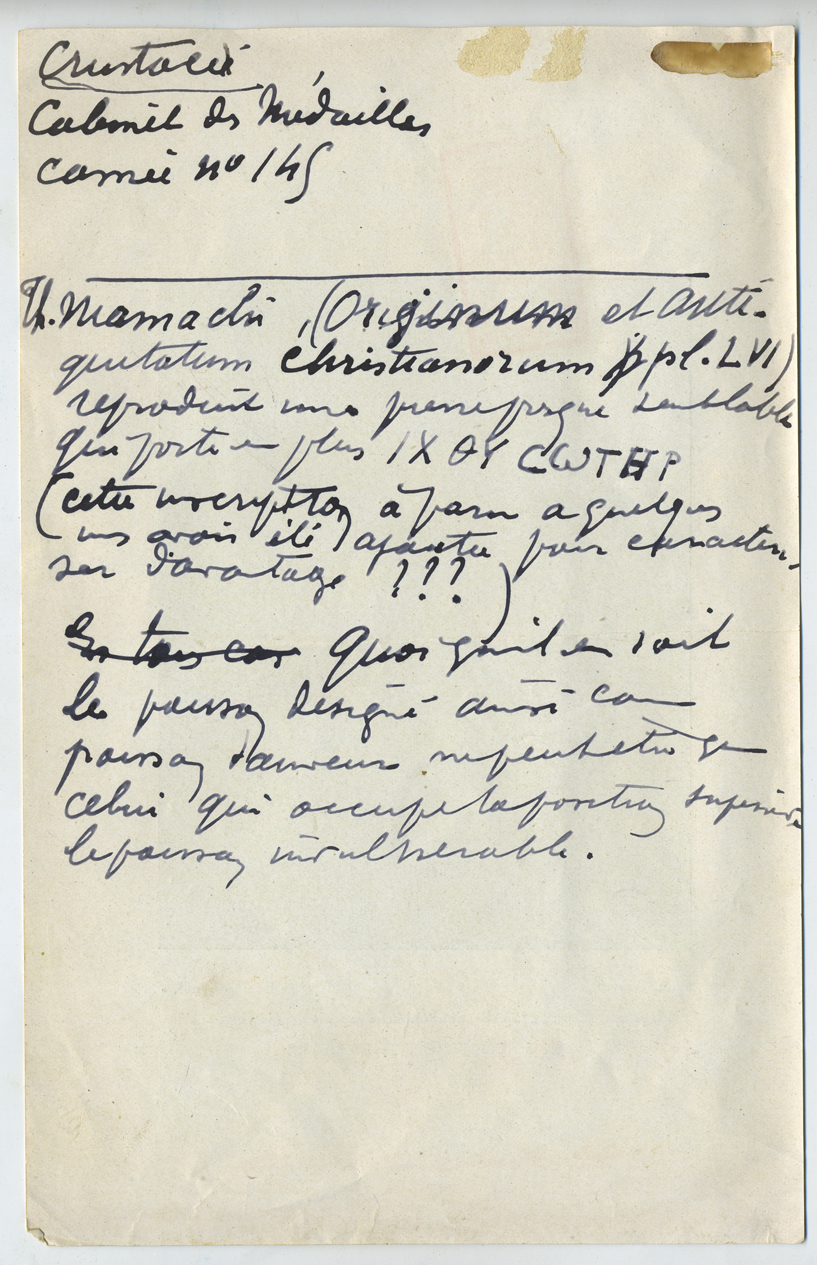 Crustacé
Cabinet des Médailles
Camée nº 145
Th. Mamachi, (Originum et Anti-
quitatum christianorum pl. LVI)
reproduit une pierre presque semblable
qui porte en plus IX ΘY CWTHP
(cette inscription a paru a quelques
uns avoir été ajoutée pour caractéri-
ser davantage ???)
En tous cas Quoi qu'il en soit
le poisson designé ainsi com
poisson sauveur ne peut etre que
celui qui occupe la position superieure
le poisson invulnerable.